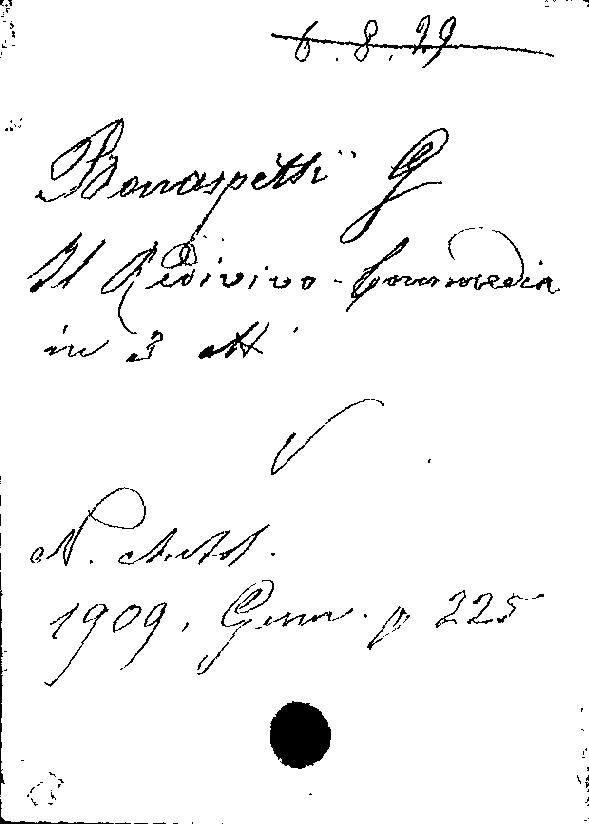 6.8.29
Bonaspetti G
Il Redivivo - Commedia
in 3 atti
N. Antol.
1909, Genn. p 225